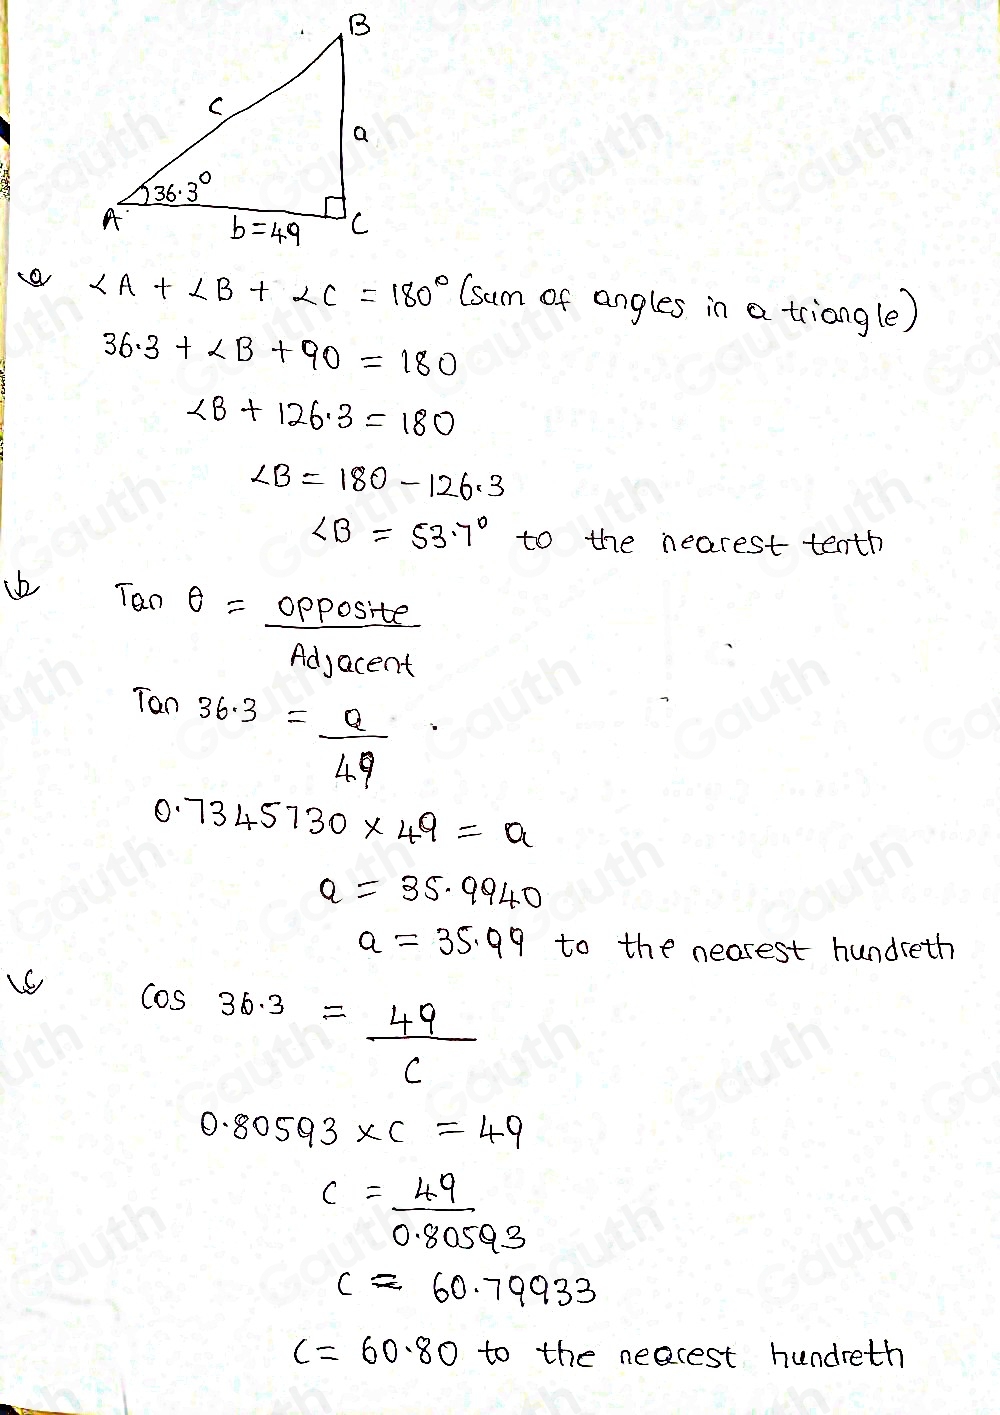 B
c
a
36.3°
A
b=49
C
a
∠A + ∠B + ∠C = 180° (sum of angles in a triangle)
36.3 + ∠B + 90 = 180
∠B + 126.3 = 180
∠B = 180 - 126.3
∠B = 53.7° to the nearest tenth
b
Tan θ = opposite
Adjacent
Tan 36.3 = a
49
0.7345730 × 49 = a
a = 35.9940
a = 35.99 to the nearest hundreth
c
Cos 36.3 = 49
C
0.80593 × C = 49
C = 49
0.80593
C = 60.79933
C = 60.80 to the nearest hundreth
Gauth